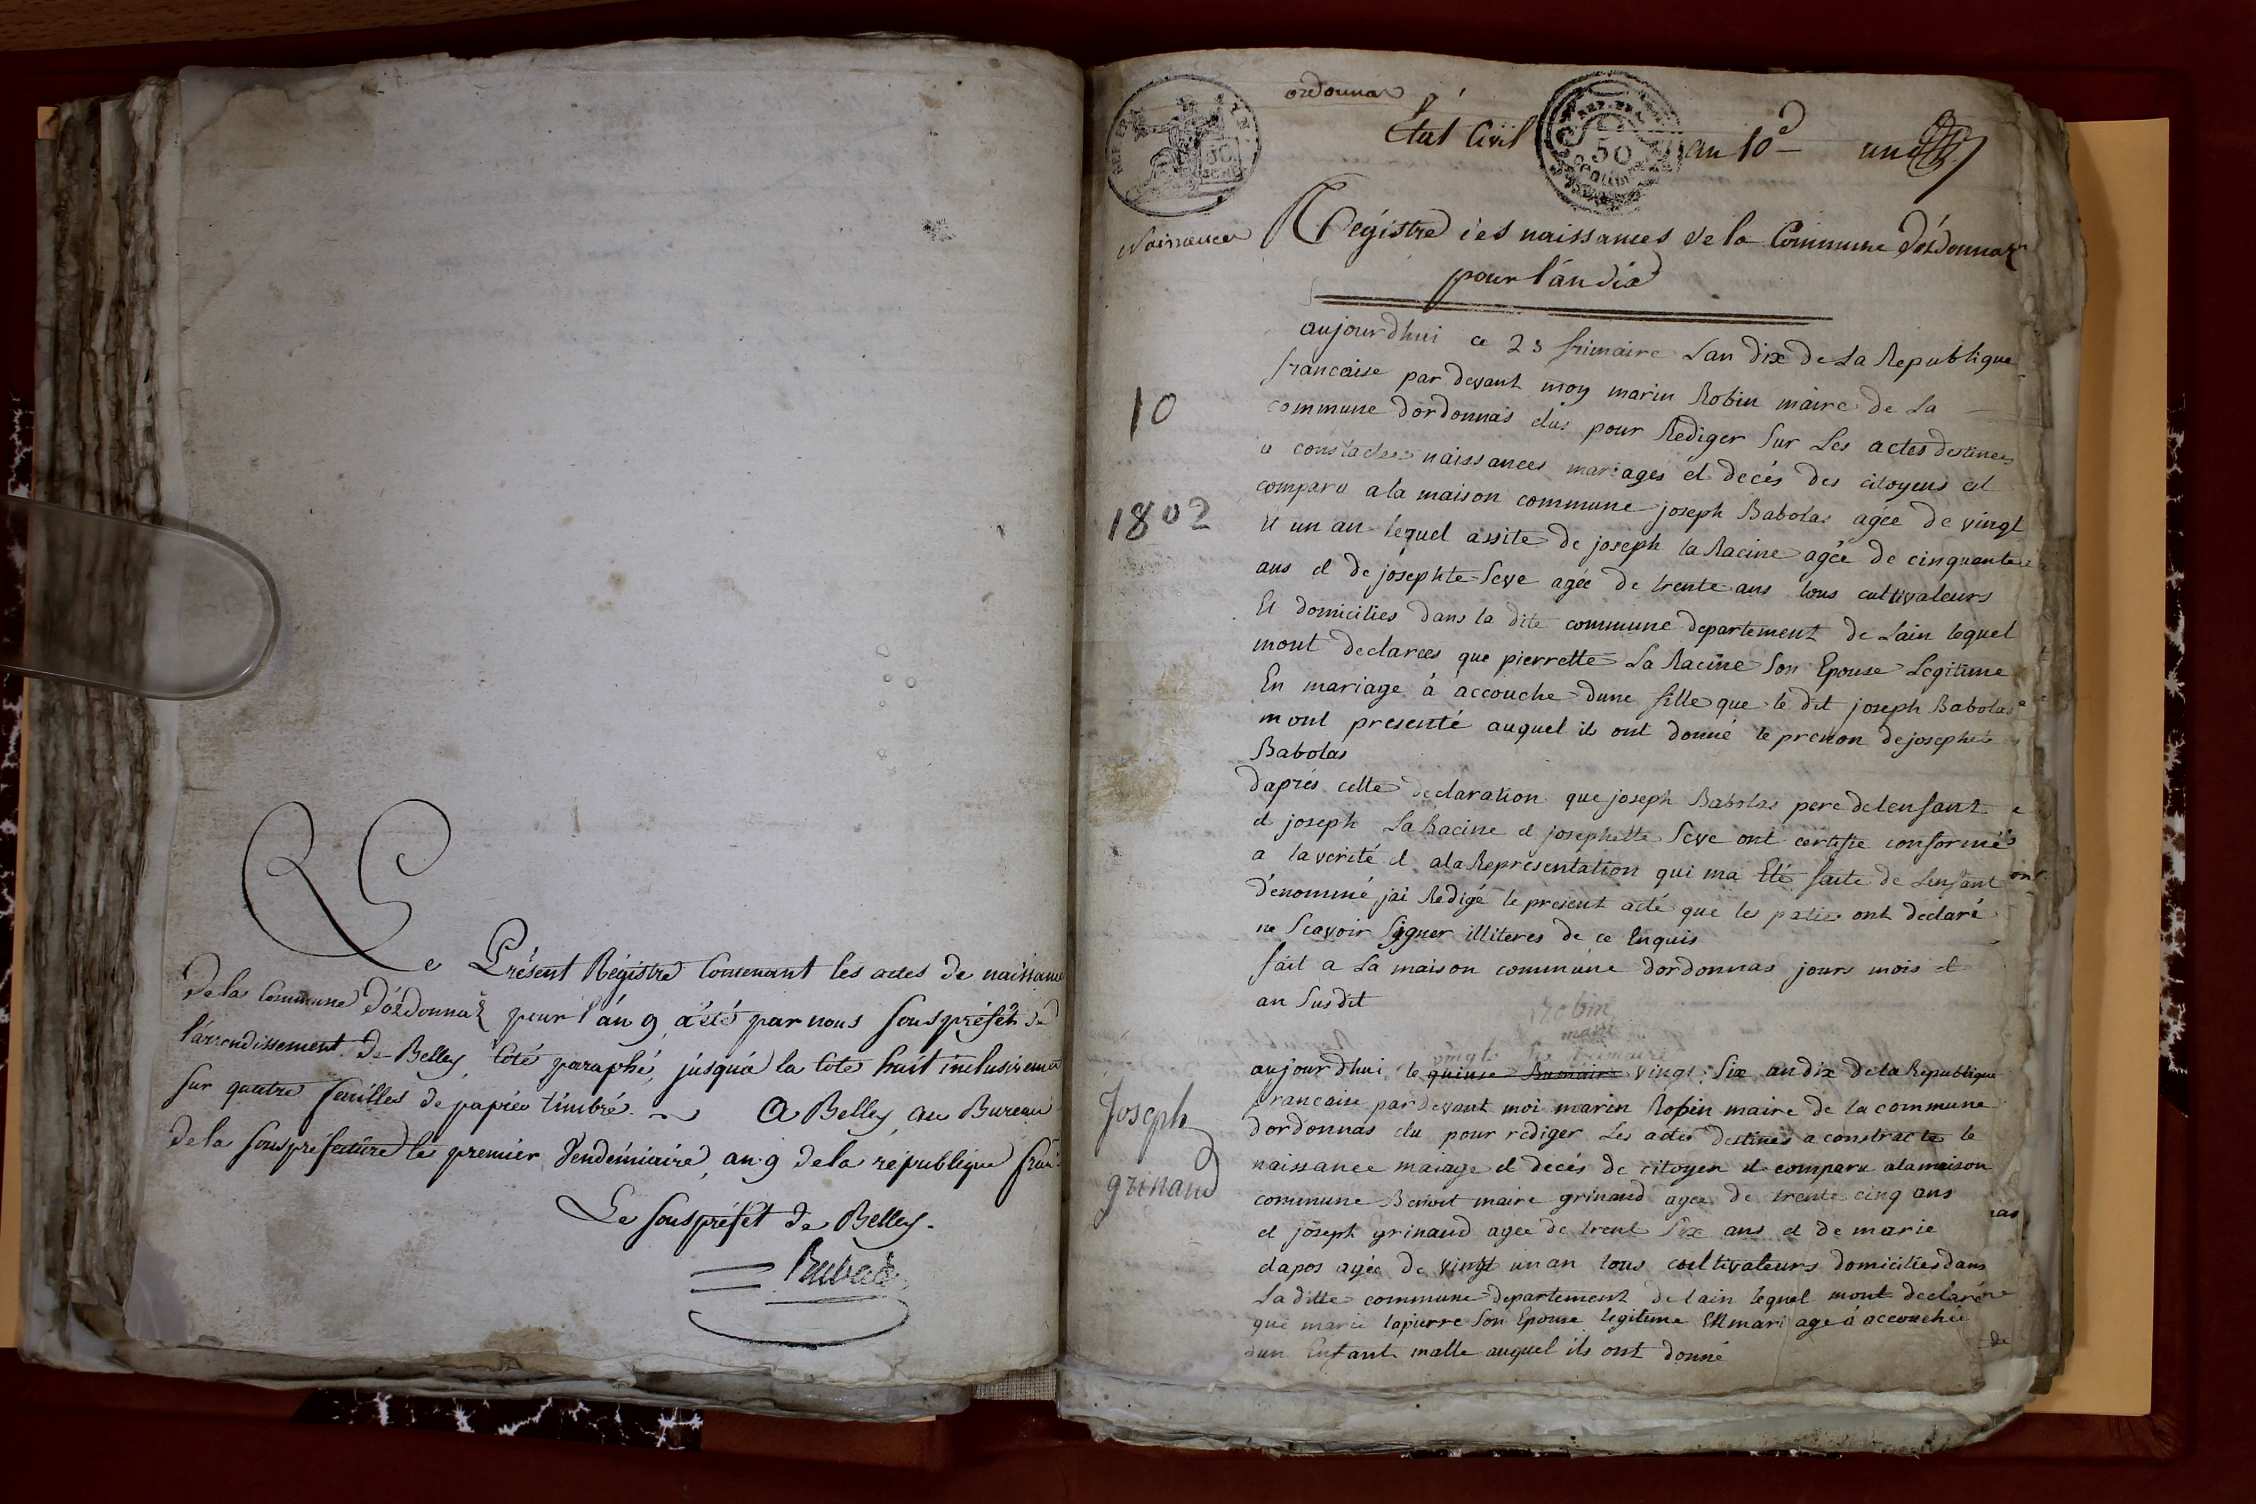 Le Présent Régistre Contenant les actes de naissance
de la Commune d'órdonnaz pour l'án 9, a été par nous souspréfet de
l'arrondissement de Belley, coté paraphé, jusqu'a la cote huit inclusivement
sur quatre feuilles de papier timbré. A Belley, au Bureau
de la souspréfecture le premier Vendémiaire, an 9 de la république fran
Le souspréfet de Belley.
ordonnaz
État Civil
an 10e
un
REP. FRA.
50
Naissances
Régistre des naissances de la Commune d'órdonnaz
pour l'án dix
10
1802
aujourdhui ce 23 frimaire Lan dix de La Republique
francaise par devant moy marin Robin maire de La
commune dordonnas elus pour Rediger Sur Les actes destinees
a constactes naissances mariages et decés des citoyens et
comparu a la maison commune joseph Babolas agée de vingt
Et un an lequel assite de joseph la Racine agée de cinquante
ans et de josephte Seve agée de trente ans tous cultivateurs
Et domicilies dans la dite commune departement de Lain lequel
mont declarees que pierrette La Racine Son Epouse Legitime
En mariage à accouche dune fille que le dit joseph Babolas
mont presenté auquel ils ont donné le prenon de josephte
Babolas
daprés cette declaration que joseph Babolas pere de lenfant
et joseph La Racine et josephette Seve ont certifie conformés
a la verité et a la Representation qui ma Eté faite de Lenfant
dénommé jai Redigé le present acté que les paties ont declaré
ne Scavoir Signer illiteres de ce Enquis
fait a La maison commune dordonnas jours mois et
an Susdit
Robin
maire
Joseph
grinand
vingt Six frimaire
aujourdhui le quinse Brumaire vingt Six an dix de la Republique
francaise par devant moi marin Robin maire de la commune
dordonnas elu pour rediger Les actes destinés a constracter le
naissance maiage et decés de citoyen et comparu a la maison
commune Benoit maire grinand agee de trente cinq ans
et joseph grinand agee de trent Six ans et de marie
dapos agée de vingt un an tous coultivateurs domicilies dans
La ditte commune departement de lain lequel mont declaré
que marie lapierre Son Epouse legitime EN mariage á accouchée
dun Enfant malle auquel ils ont donné